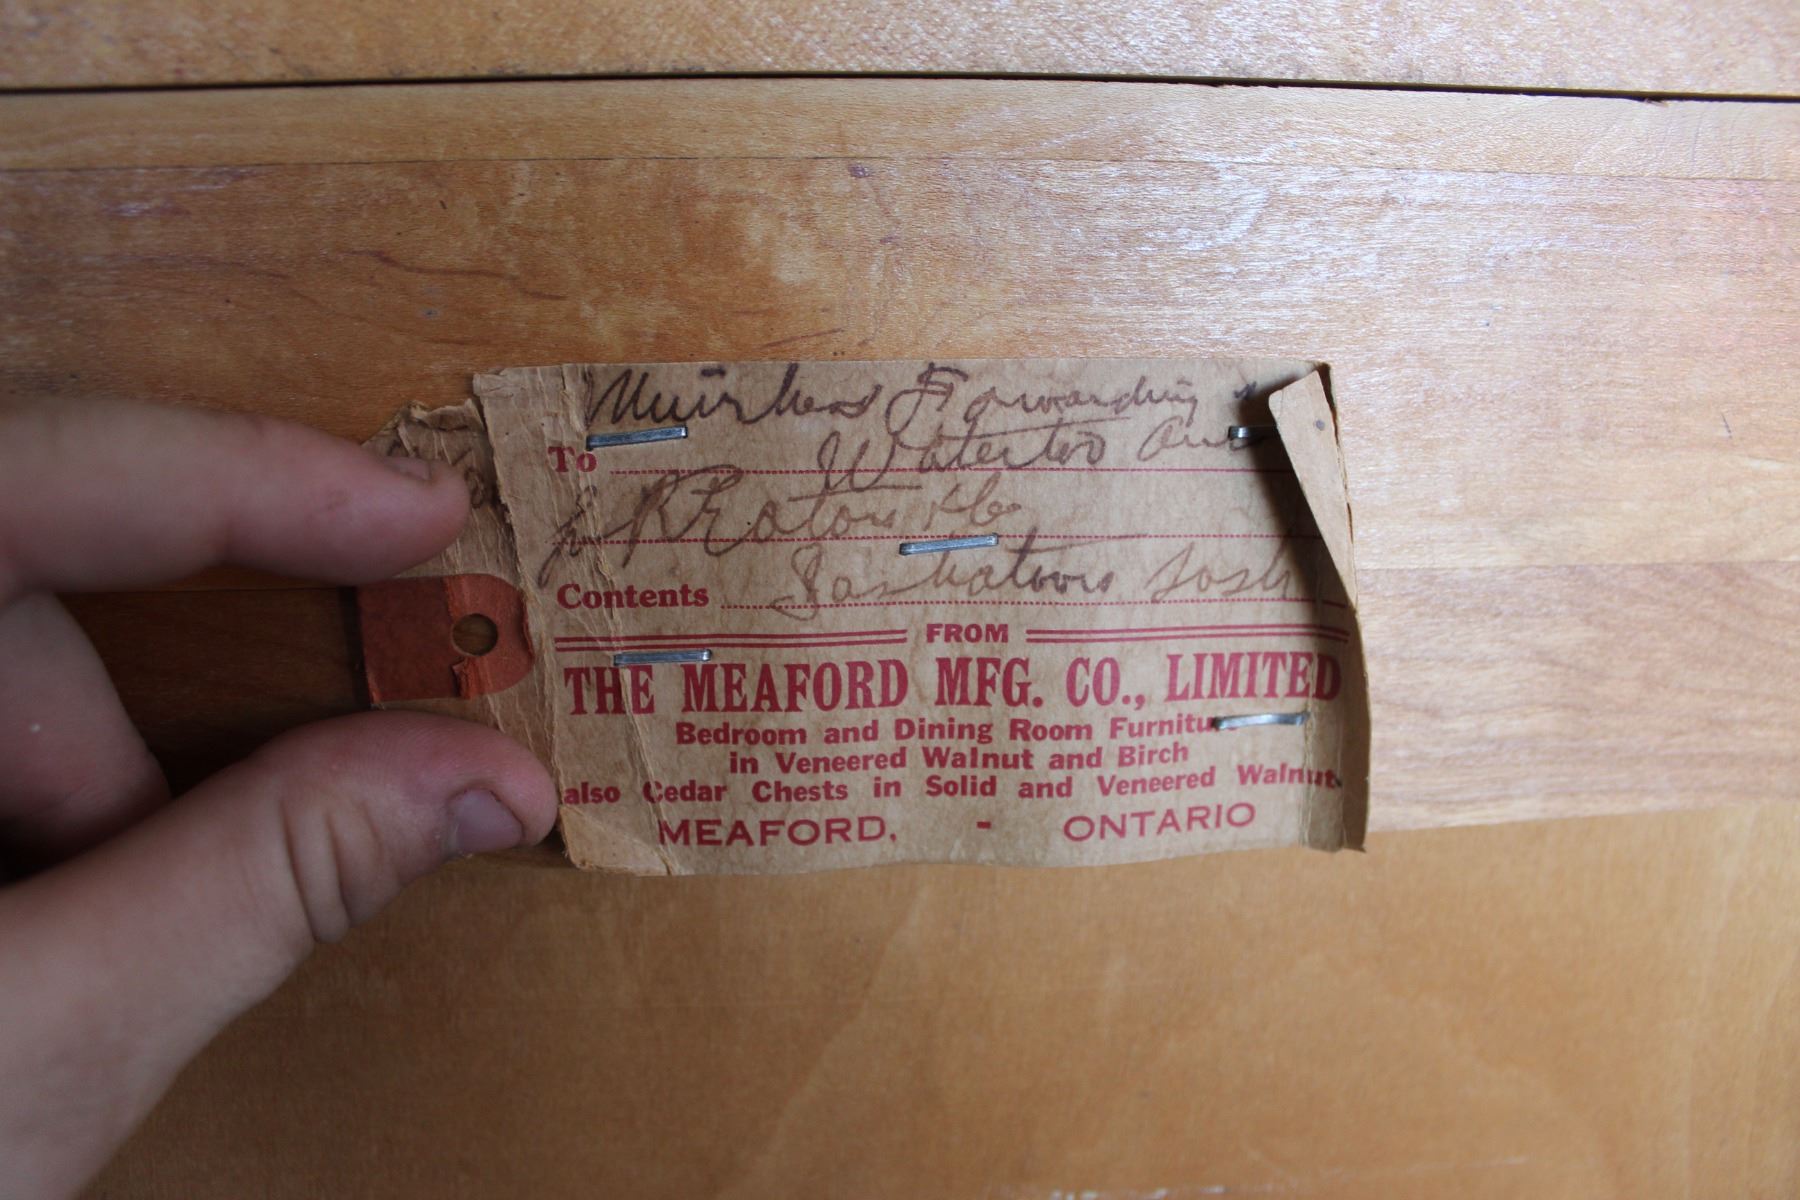 Muirhead Forwarding
To Waterloo Ont
R Eaton & Co
Contents Saskatoon Sask
FROM
THE MEAFORD MFG. CO., LIMITED
Bedroom and Dining Room Furnitu
in Veneered Walnut and Birch
also Cedar Chests in Solid and Veneered Walnut.
MEAFORD, - ONTARIO